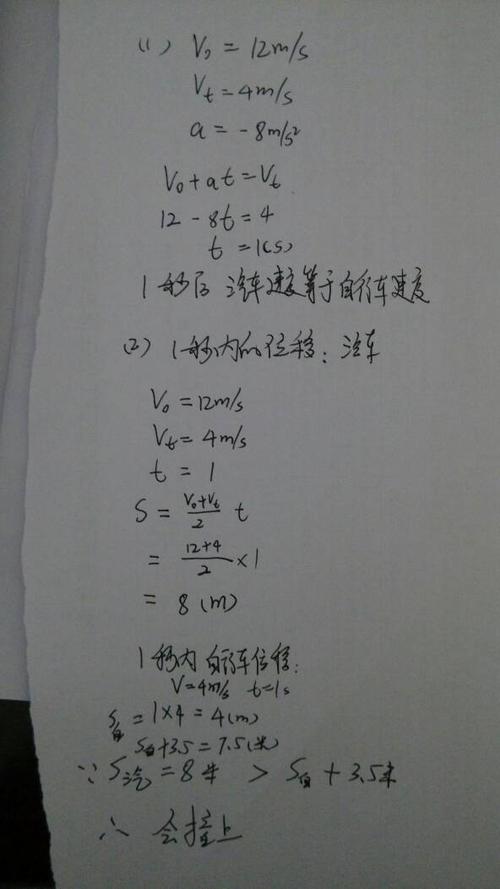 (1) V₀ = 12m/s
Vt = 4m/s
a = -8m/s²
V₀+at=Vt
12-8t=4
t=1(s)
1秒后 汽车速度等于自行车速度
(2) 1秒内的位移：汽车
V₀=12m/s
Vt=4m/s
t = 1
S = (V₀+Vt)/2 t
= (12+4)/2 ×1
= 8(m)
1秒内 自行车位移：
V=4m/s t=1s
S自=1×4=4(m)
S自+3.5=7.5(米)
∵ S汽=8米 > S自+3.5米
∴ 会撞上